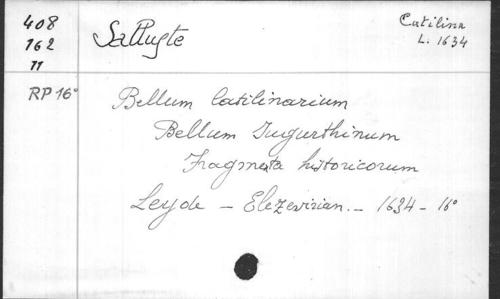 408
162
11
Salluste
Catilina
L. 1634
RP 16°
Bellum Catilinarium
Bellum Jugurthinum
Fragmenta historicorum
Leyde - Elezevirian. - 1634 - 16°